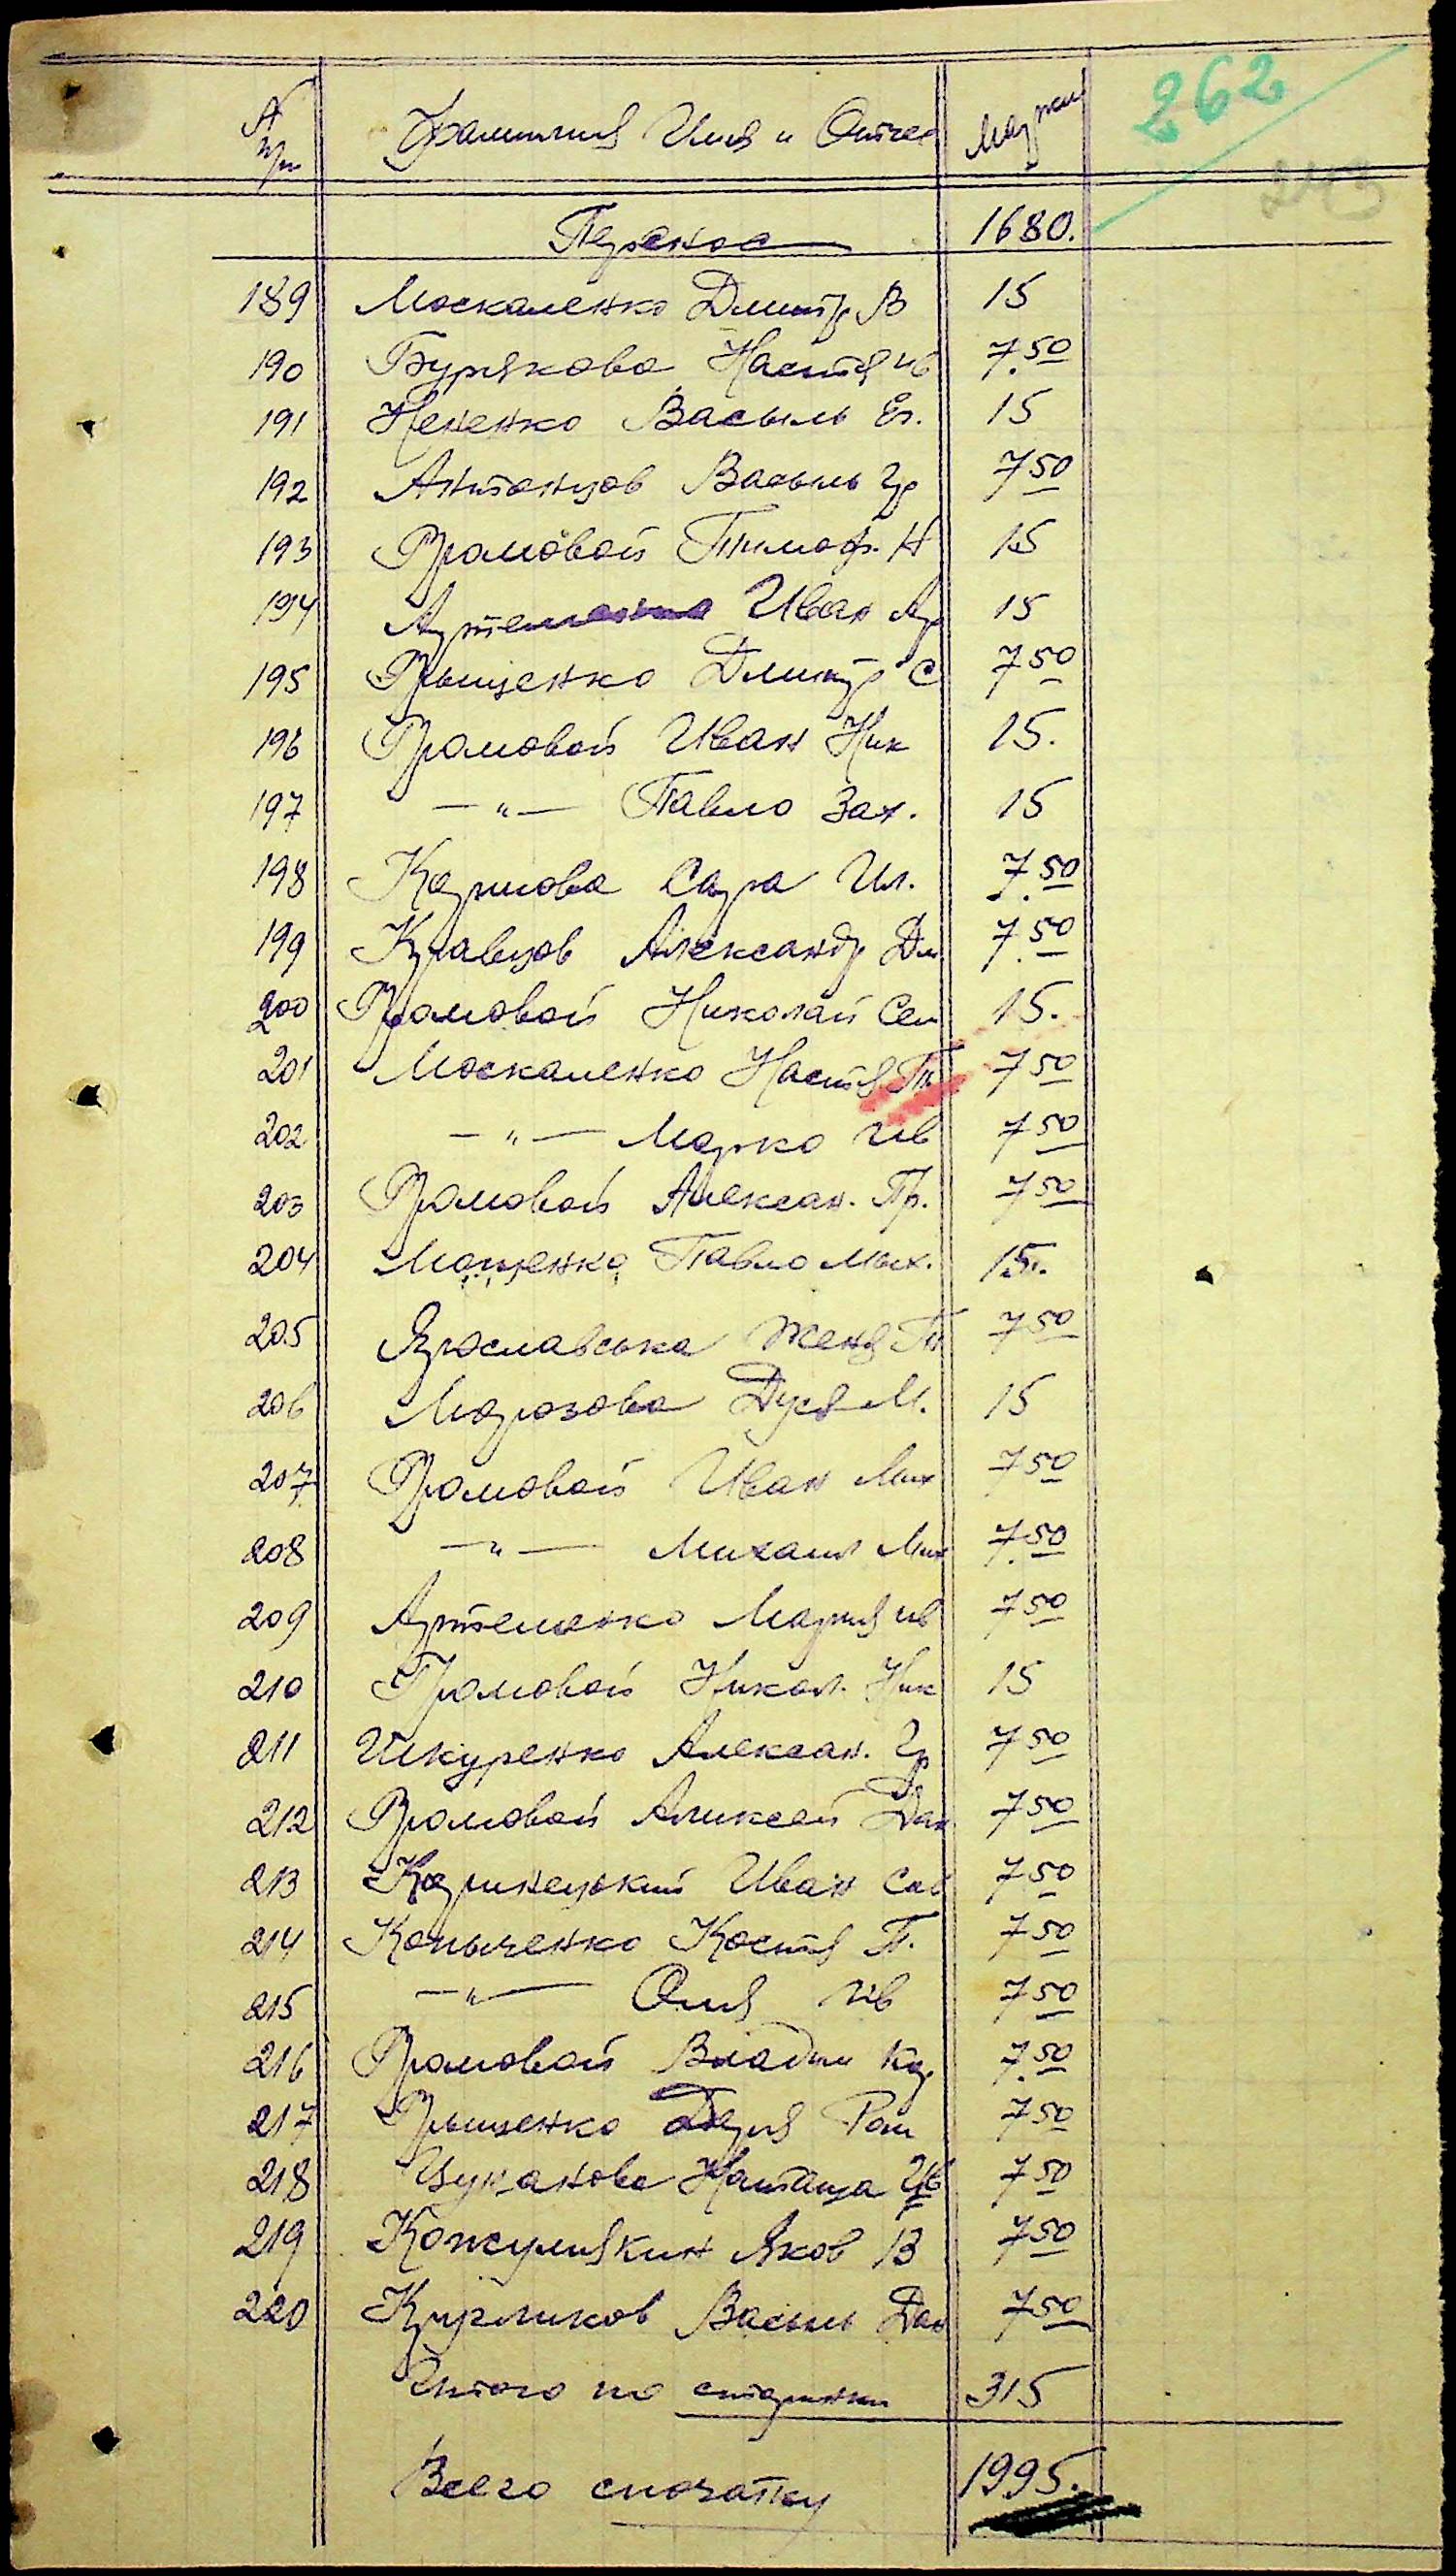 262
243
№ п/п Фамилия Имя и Отчес Марки
Перенос 1680.
189 Москаленко Дмитр В 15
190 Бурякова Настя Ив 7.50
191 Нененко Васыль Ег. 15
192 Антонцов Васыль Гр 7 50
193 Громовой Тимоф. Н 15
194 Артеменко Иван Ар 15
195 Грыценко Дмитр С 7 50
196 Громовой Иван Ник 15.
197 — " — Павло Зах. 15
198 Каримова Сара Ил. 7.50
199 Кравцов Александр Дм 7.50
200 Громовой Николай Сем 15.
201 Москаленко Настя 7 50
202 — " — Марко Ив 7 50
203 Громовой Алексан. Гр. 7 50
204 Моценко Павло Мих. 15.
205 Ярославська Женя 7 50
206 Морозова Дуся М. 15
207 Громовой Иван Мих 7 50
208 — " — Михаил Мих 7.50
209 Артеменко Мария Ив 7 50
210 Громовой Никол. Ник 15
211 Шкуренко Алексан. Гр 7 50
212 Громовой Алексей Дан 7 50
213 Иван Сав 7 50
214 Копыченко Костя П. 7 50
215 — " — Оля Ив 7 50
216 Громовой Владим 7.50
217 Грыценко Ром 7 50
218 Цуканова Наташа Ив 7 50
219 Яков В 7 50
220 Васыль Дан 7 50
Итого по старинки 315
Всего спочатку 1995.